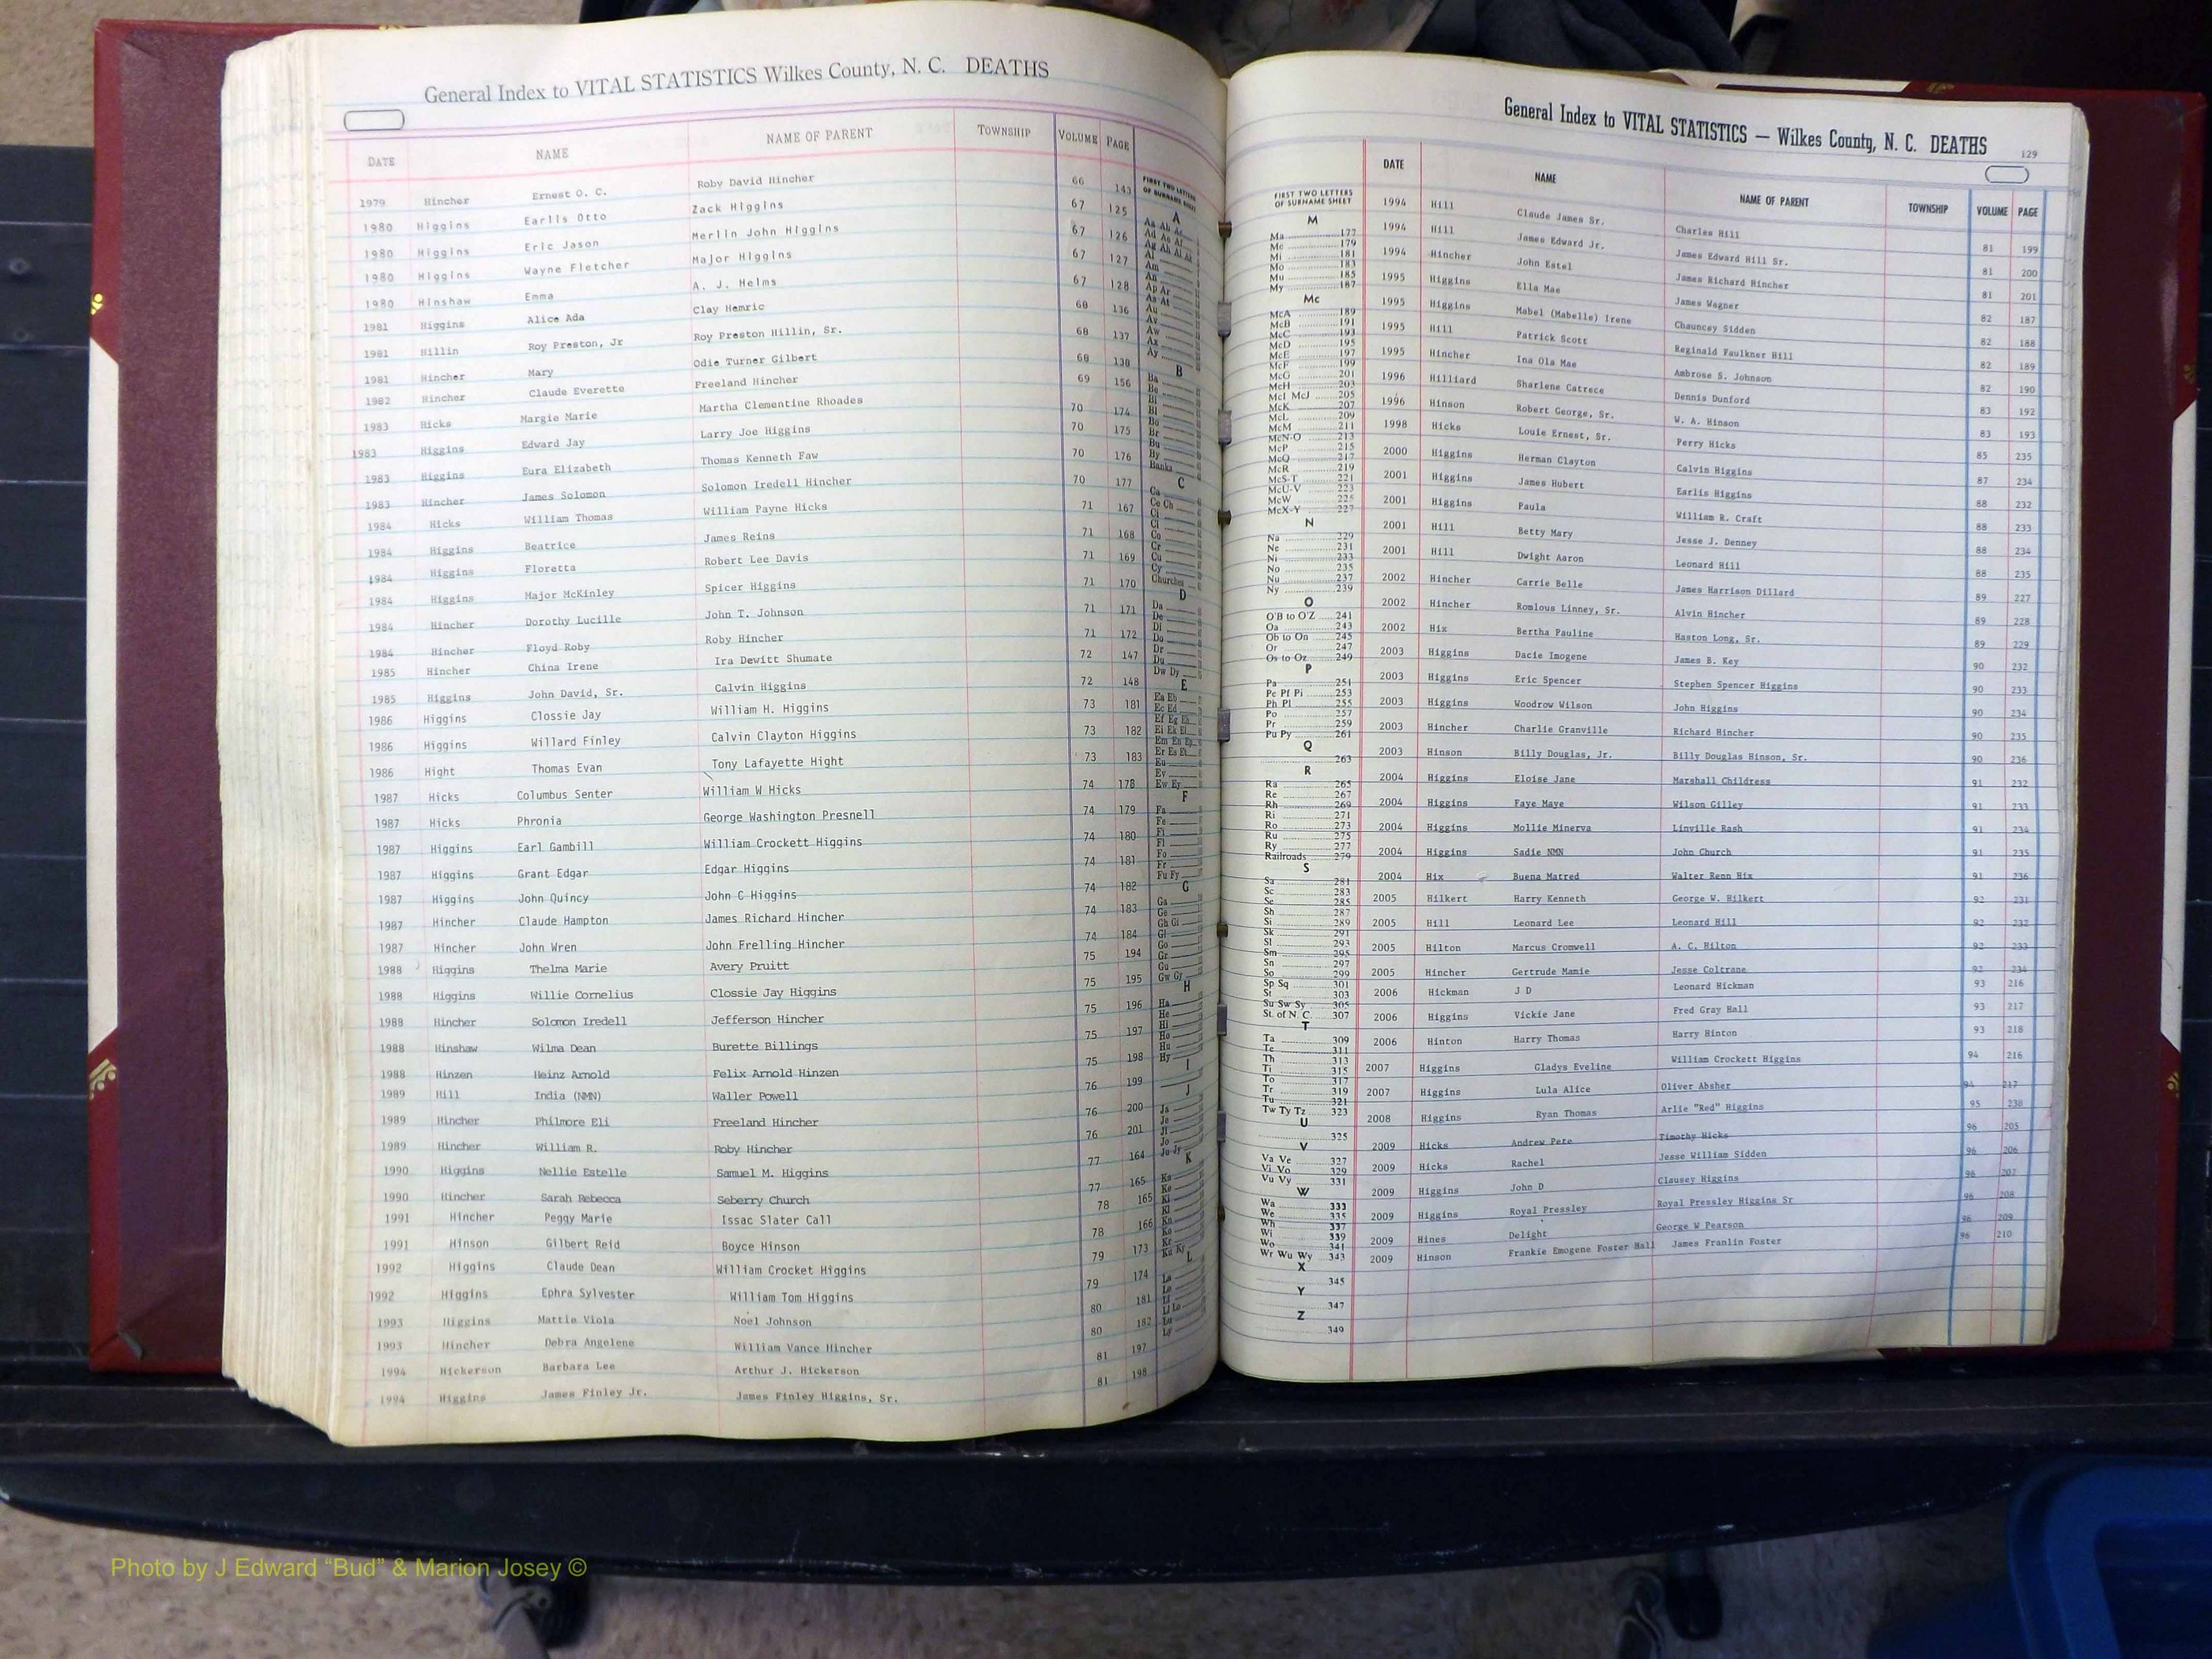 General Index to VITAL STATISTICS Wilkes County, N. C. DEATHS
DATE NAME NAME OF PARENT TOWNSHIP VOLUME PAGE
1979 Hincher Ernest O. C. Roby David Hincher 66 143
1980 Higgins Earlis Otto Zack Higgins 67 125
1980 Higgins Eric Jason Merlin John Higgins 67 126
1980 Higgins Wayne Fletcher Major Higgins 67 127
1980 Hinshaw Emma A. J. Helms 67 128
1981 Higgins Alice Ada Clay Hemric 68 136
1981 Hillin Roy Preston, Jr Roy Preston Hillin, Sr. 68 137
1981 Hincher Mary Odie Turner Gilbert 68 138
1982 Hincher Claude Everette Freeland Hincher 69 156
1983 Hicks Margie Marie Martha Clementine Rhoades 70 174
1983 Higgins Edward Jay Larry Joe Higgins 70 175
1983 Higgins Eura Elizabeth Thomas Kenneth Faw 70 176
1983 Hincher James Solomon Solomon Iredell Hincher 70 177
1984 Hicks William Thomas William Payne Hicks 71 167
1984 Higgins Beatrice James Reins 71 168
1984 Higgins Floretta Robert Lee Davis 71 169
1984 Higgins Major McKinley Spicer Higgins 71 170
1984 Hincher Dorothy Lucille John T. Johnson 71 171
1984 Hincher Floyd Roby Roby Hincher 71 172
1985 Hincher China Irene Ira Dewitt Shumate 72 147
1985 Higgins John David, Sr. Calvin Higgins 72 148
1986 Higgins Clossie Jay William H. Higgins 73 181
1986 Higgins Willard Finley Calvin Clayton Higgins 73 182
1986 Hight Thomas Evan Tony Lafayette Hight 73 183
1987 Hicks Columbus Senter William W Hicks 74 178
1987 Hicks Phronia George Washington Presnell 74 179
1987 Higgins Earl Gambill William Crockett Higgins 74 180
1987 Higgins Grant Edgar Edgar Higgins 74 181
1987 Higgins John Quincy John C Higgins 74 182
1987 Hincher Claude Hampton James Richard Hincher 74 183
1987 Hincher John Wren John Frelling Hincher 74 184
1988 Higgins Thelma Marie Avery Pruitt 75 194
1988 Higgins Willie Cornelius Clossie Jay Higgins 75 195
1988 Hincher Solomon Iredell Jefferson Hincher 75 196
1988 Hinshaw Wilma Dean Burette Billings 75 197
1988 Hinzen Heinz Arnold Felix Arnold Hinzen 75 198
1989 Hill India (NMN) Waller Powell 76 199
1989 Hincher Philmore Eli Freeland Hincher 76 200
1989 Hincher William R. Roby Hincher 76 201
1990 Higgins Nellie Estelle Samuel M. Higgins 77 164
1990 Hincher Sarah Rebecca Seberry Church 77 165
1991 Hincher Peggy Marie Issac Slater Call 78 165
1991 Hinson Gilbert Reid Boyce Hinson 78 166
1992 Higgins Claude Dean William Crocket Higgins 79 173
1992 Higgins Ephra Sylvester William Tom Higgins 79 174
1993 Higgins Mattie Viola Noel Johnson 80 181
1993 Hincher Debra Angelene William Vance Hincher 80 182
1994 Hickerson Barbara Lee Arthur J. Hickerson 81 197
1994 Higgins James Finley Jr. James Finley Higgins, Sr. 81 198
FIRST TWO LETTERS
OF SURNAME SHEET
A
Am
An
Ap Ar
As At
Au
Av
Aw
Ax
Ay
B
Ba
Be
Bi
Bl
Bo
Br
Bu
By
Banks
C
Ca
Ce Ch
Ci
Cl
Co
Cr
Cu
Cy
Churches
D
Da
De
Di
Do
Dr
Du
Dw Dy
E
Ea Eb
Ec Ed
Ef Eg Eh
Ei Ek El
Em En Ep
Er Es Et
Eu
Ev
Ew Ey
F
Fa
Fe
Fi
Fl
Fo
Fr
Fu Fy
G
Ga
Ge
Gh Gi
Gl
Go
Gr
Gu
Gw Gy
H
Ha
He
Hi
Ho
Hu
Hy
I
J
Ja
Je
Ji
Jo
Ju Jy
K
Ka
Ke
Ki
Kl
Kn
Ko
Kr
Ku Ky
L
La
Le
Li
Ll Lo
Lu
Ly
General Index to VITAL STATISTICS — Wilkes County, N. C. DEATHS
129
FIRST TWO LETTERS
OF SURNAME SHEET
M
Ma 177
Me 179
Mi 181
Mo 183
Mu 185
My 187
Mc
McA 189
McB 191
McC 193
McD 195
McE 197
McF 199
McG 201
McH 203
McI McJ 205
McK 207
McL 209
McM 211
McN-O 213
McP 215
McQ 217
McR 219
McS-T 221
McU-V 223
McW 225
McX-Y 227
N
Na 229
Ne 231
Ni 233
No 235
Nu 237
Ny 239
O
O'B to O'Z 241
Oa 243
Ob to On 245
Or 247
Os to Oz 249
P
Pa 251
Pe Pf Pi 253
Ph Pl 255
Po 257
Pr 259
Pu Py 261
Q
263
R
Ra 265
Re 267
Rh 269
Ri 271
Ro 273
Ru 275
Ry 277
Railroads 279
S
Sa 281
Sc 283
Se 285
Sh 287
Si 289
Sk 291
Sl 293
Sm 295
Sn 297
So 299
Sp Sq 301
St 303
Su Sw Sy 305
St. of N. C. 307
T
Ta 309
Te 311
Th 313
Ti 315
To 317
Tr 319
Tu 321
Tw Ty Tz 323
U
325
V
Va Ve 327
Vi Vo 329
Vu Vy 331
W
Wa 333
We 335
Wh 337
Wi 339
Wo 341
Wr Wu Wy 343
X
345
Y
347
Z
349
DATE NAME NAME OF PARENT TOWNSHIP VOLUME PAGE
1994 Hill Claude James Sr. Charles Hill 81 199
1994 Hill James Edward Jr. James Edward Hill Sr. 81 200
1994 Hincher John Estel James Richard Hincher 81 201
1995 Higgins Ella Mae James Wagner 82 187
1995 Higgins Mabel (Mabelle) Irene Chauncey Sidden 82 188
1995 Hill Patrick Scott Reginald Faulkner Hill 82 189
1995 Hincher Ina Ola Mae Ambrose S. Johnson 82 190
1996 Hilliard Sharlene Catrece Dennis Dunford 83 192
1996 Hinson Robert George, Sr. W. A. Hinson 83 193
1998 Hicks Louie Ernest, Sr. Perry Hicks 85 235
2000 Higgins Herman Clayton Calvin Higgins 87 234
2001 Higgins James Hubert Earlis Higgins 88 232
2001 Higgins Paula William R. Craft 88 233
2001 Hill Betty Mary Jesse J. Denney 88 234
2001 Hill Dwight Aaron Leonard Hill 88 235
2002 Hincher Carrie Belle James Harrison Dillard 89 227
2002 Hincher Romlous Linney, Sr. Alvin Hincher 89 228
2002 Hix Bertha Pauline Haston Long, Sr. 89 229
2003 Higgins Dacie Imogene James B. Key 90 232
2003 Higgins Eric Spencer Stephen Spencer Higgins 90 233
2003 Higgins Woodrow Wilson John Higgins 90 234
2003 Hincher Charlie Granville Richard Hincher 90 235
2003 Hinson Billy Douglas, Jr. Billy Douglas Hinson, Sr. 90 236
2004 Higgins Eloise Jane Marshall Childress 91 232
2004 Higgins Faye Maye Wilson Gilley 91 233
2004 Higgins Mollie Minerva Linville Rash 91 234
2004 Higgins Sadie NMN John Church 91 235
2004 Hix Buena Matred Walter Renn Hix 91 236
2005 Hilkert Harry Kenneth George W. Hilkert 92 231
2005 Hill Leonard Lee Leonard Hill 92 232
2005 Hilton Marcus Cromwell A. C. Hilton 92 233
2005 Hincher Gertrude Mamie Jesse Coltrane 92 234
2006 Hickman J D Leonard Hickman 93 216
2006 Higgins Vickie Jane Fred Gray Hall 93 217
2006 Hinton Harry Thomas Harry Hinton 93 218
2007 Higgins Gladys Eveline William Crockett Higgins 94 216
2007 Higgins Lula Alice Oliver Absher 94 217
2008 Higgins Ryan Thomas Arlie "Red" Higgins 95 238
2009 Hicks Andrew Pete Timothy Hicks 96 205
2009 Hicks Rachel Jesse William Sidden 96 206
2009 Higgins John D Clausey Higgins 96 207
2009 Higgins Royal Pressley Royal Pressley Higgins Sr 96 208
2009 Hines Delight George W Pearson 96 209
2009 Hinson Frankie Emogene Foster Hall James Franlin Foster 96 210
Photo by J Edward “Bud” & Marion Josey ©